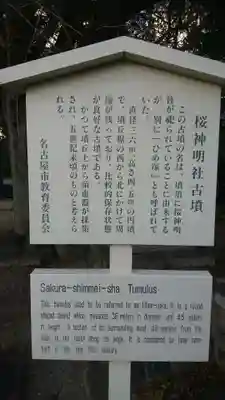 桜神明社古墳
この古墳の名は、墳頂に桜神明
社が祀られていることに由来する
が、別に「ひめ塚」とも呼ばれて
いた。
直径三六m、高さ四・五mの円墳
で、墳丘裾の西から北にかけて周
濠が残っており、比較的保存状態
が良好な古墳である。
かつて墳丘上から須恵器が採集
され、五世紀末頃のものと考えら
れる。
名古屋市教育委員会
Sakura-shinmei-sha Tumulus
This tumulus used to be referred to as Hime-zuka. It is a round
shaped mound which measures 36 meters in diameter and 4.5 meters
in height. A section of its surrounding moat still remains from the
west to the north along its edge. It is considered to have been
built in the late fifth century.